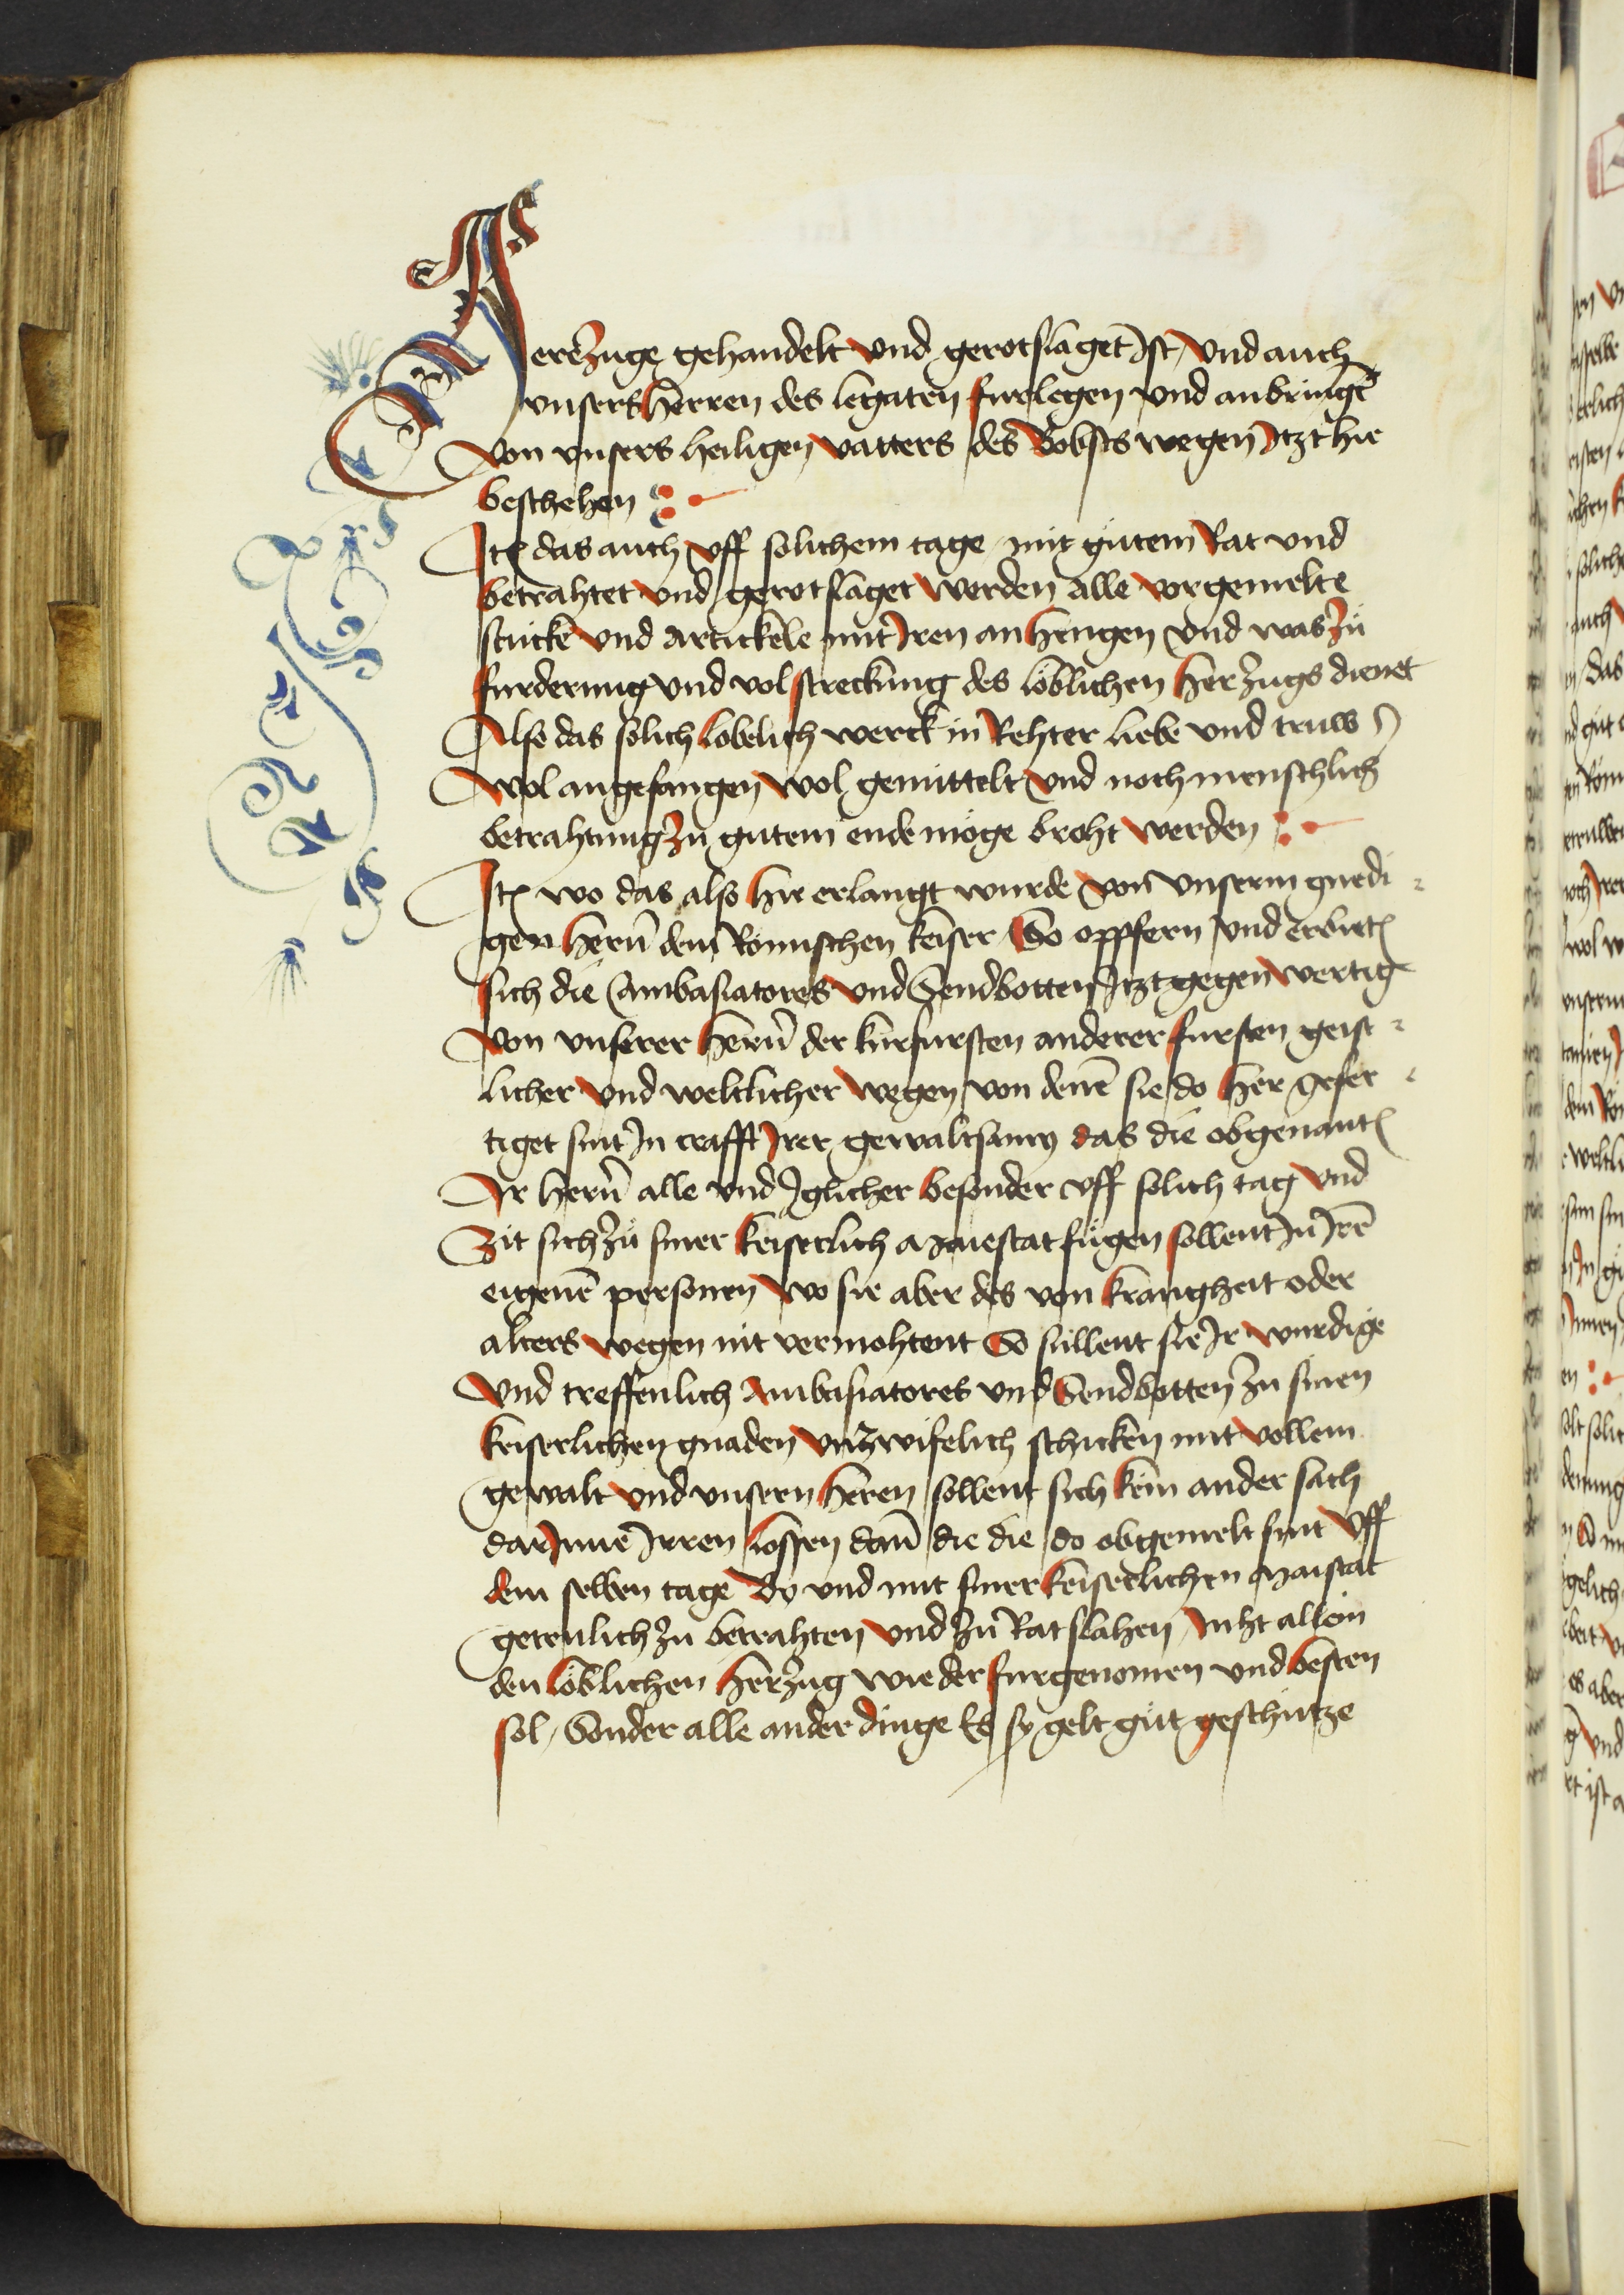 Herrezuge gehandelt vnd gerotslaget Ist / vnd auch
vnsers herren des legaten furlegen vnd anbringē
von vnsers heiligen vatters des Bobsts wegen Itzt hie
beschehen
Itē das auch vff solichem tage mit gůtem Rat vnd
betrahtet vnd gerotslaget werden alle vorgemelte
stucke vnd Artickele mit Iren anhengen vnd was zů
furderung vnd volstreckung des löblichen herzugs dienet
Also das solich lobelich werck in Rehter liebe vnd truw
wol angefangen wol gemittelt vnd noch menschlich
betrahtung zů gutem ende möge broht werden
Itē wo das also hie erlangt wurde von vnserm gnedi
gen hern̄ dem Römischen keiser So oppfern vnd erbietē
sich die Ambasiatores vnd Sendbotten Itzt gegenwertig
von vnserer hern̄ der kurfursten anderer fursten geist
licher vnd weltlicher wegen von denē sie do her gefer
tiget sint In crafft Irer gewaltsamy das die obgenantē
Ir hern̄ alle vnd Iglicher besonder vff solich tag vnd
Zit sich zů siner keiserlich Maiestat fůgen sollent In Irē
eigenē personen wo sie aber des von krangheit oder
alters wegen nit vermohtent So sůllent sie Ir wurdige
vnd treffenlich Ambasiatores vnd Sendbotten zu sinen
keiserlichen gnaden vnzwifelich schicken mit vollem
gewalt vnd vnsern heren sollent sich kein ander sach
dar Inne Irren lossen dan̄ die die do obgemelt sint vff
dem selben tage By vnd mit siner keiserlichen Maistat
getrulich zu betrahten vnd zů Ratslahen / niht allein
den löblichen herzug wie der furgenomen vnd besten
sol / Sonder alle ander dinge Es sy gelt gůt geschutze